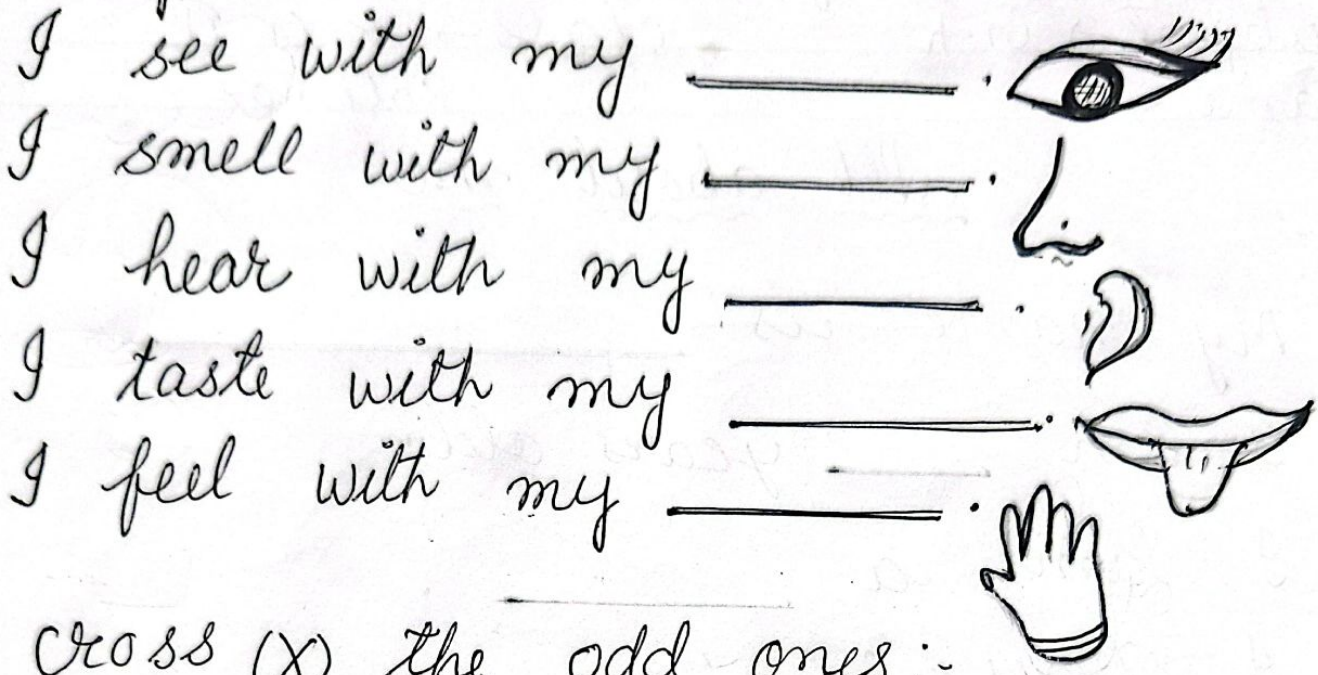 I see with my ________.
I smell with my ________.
I hear with my ________.
I taste with my ________.
I feel with my ________.
Cross (X) the odd ones :-